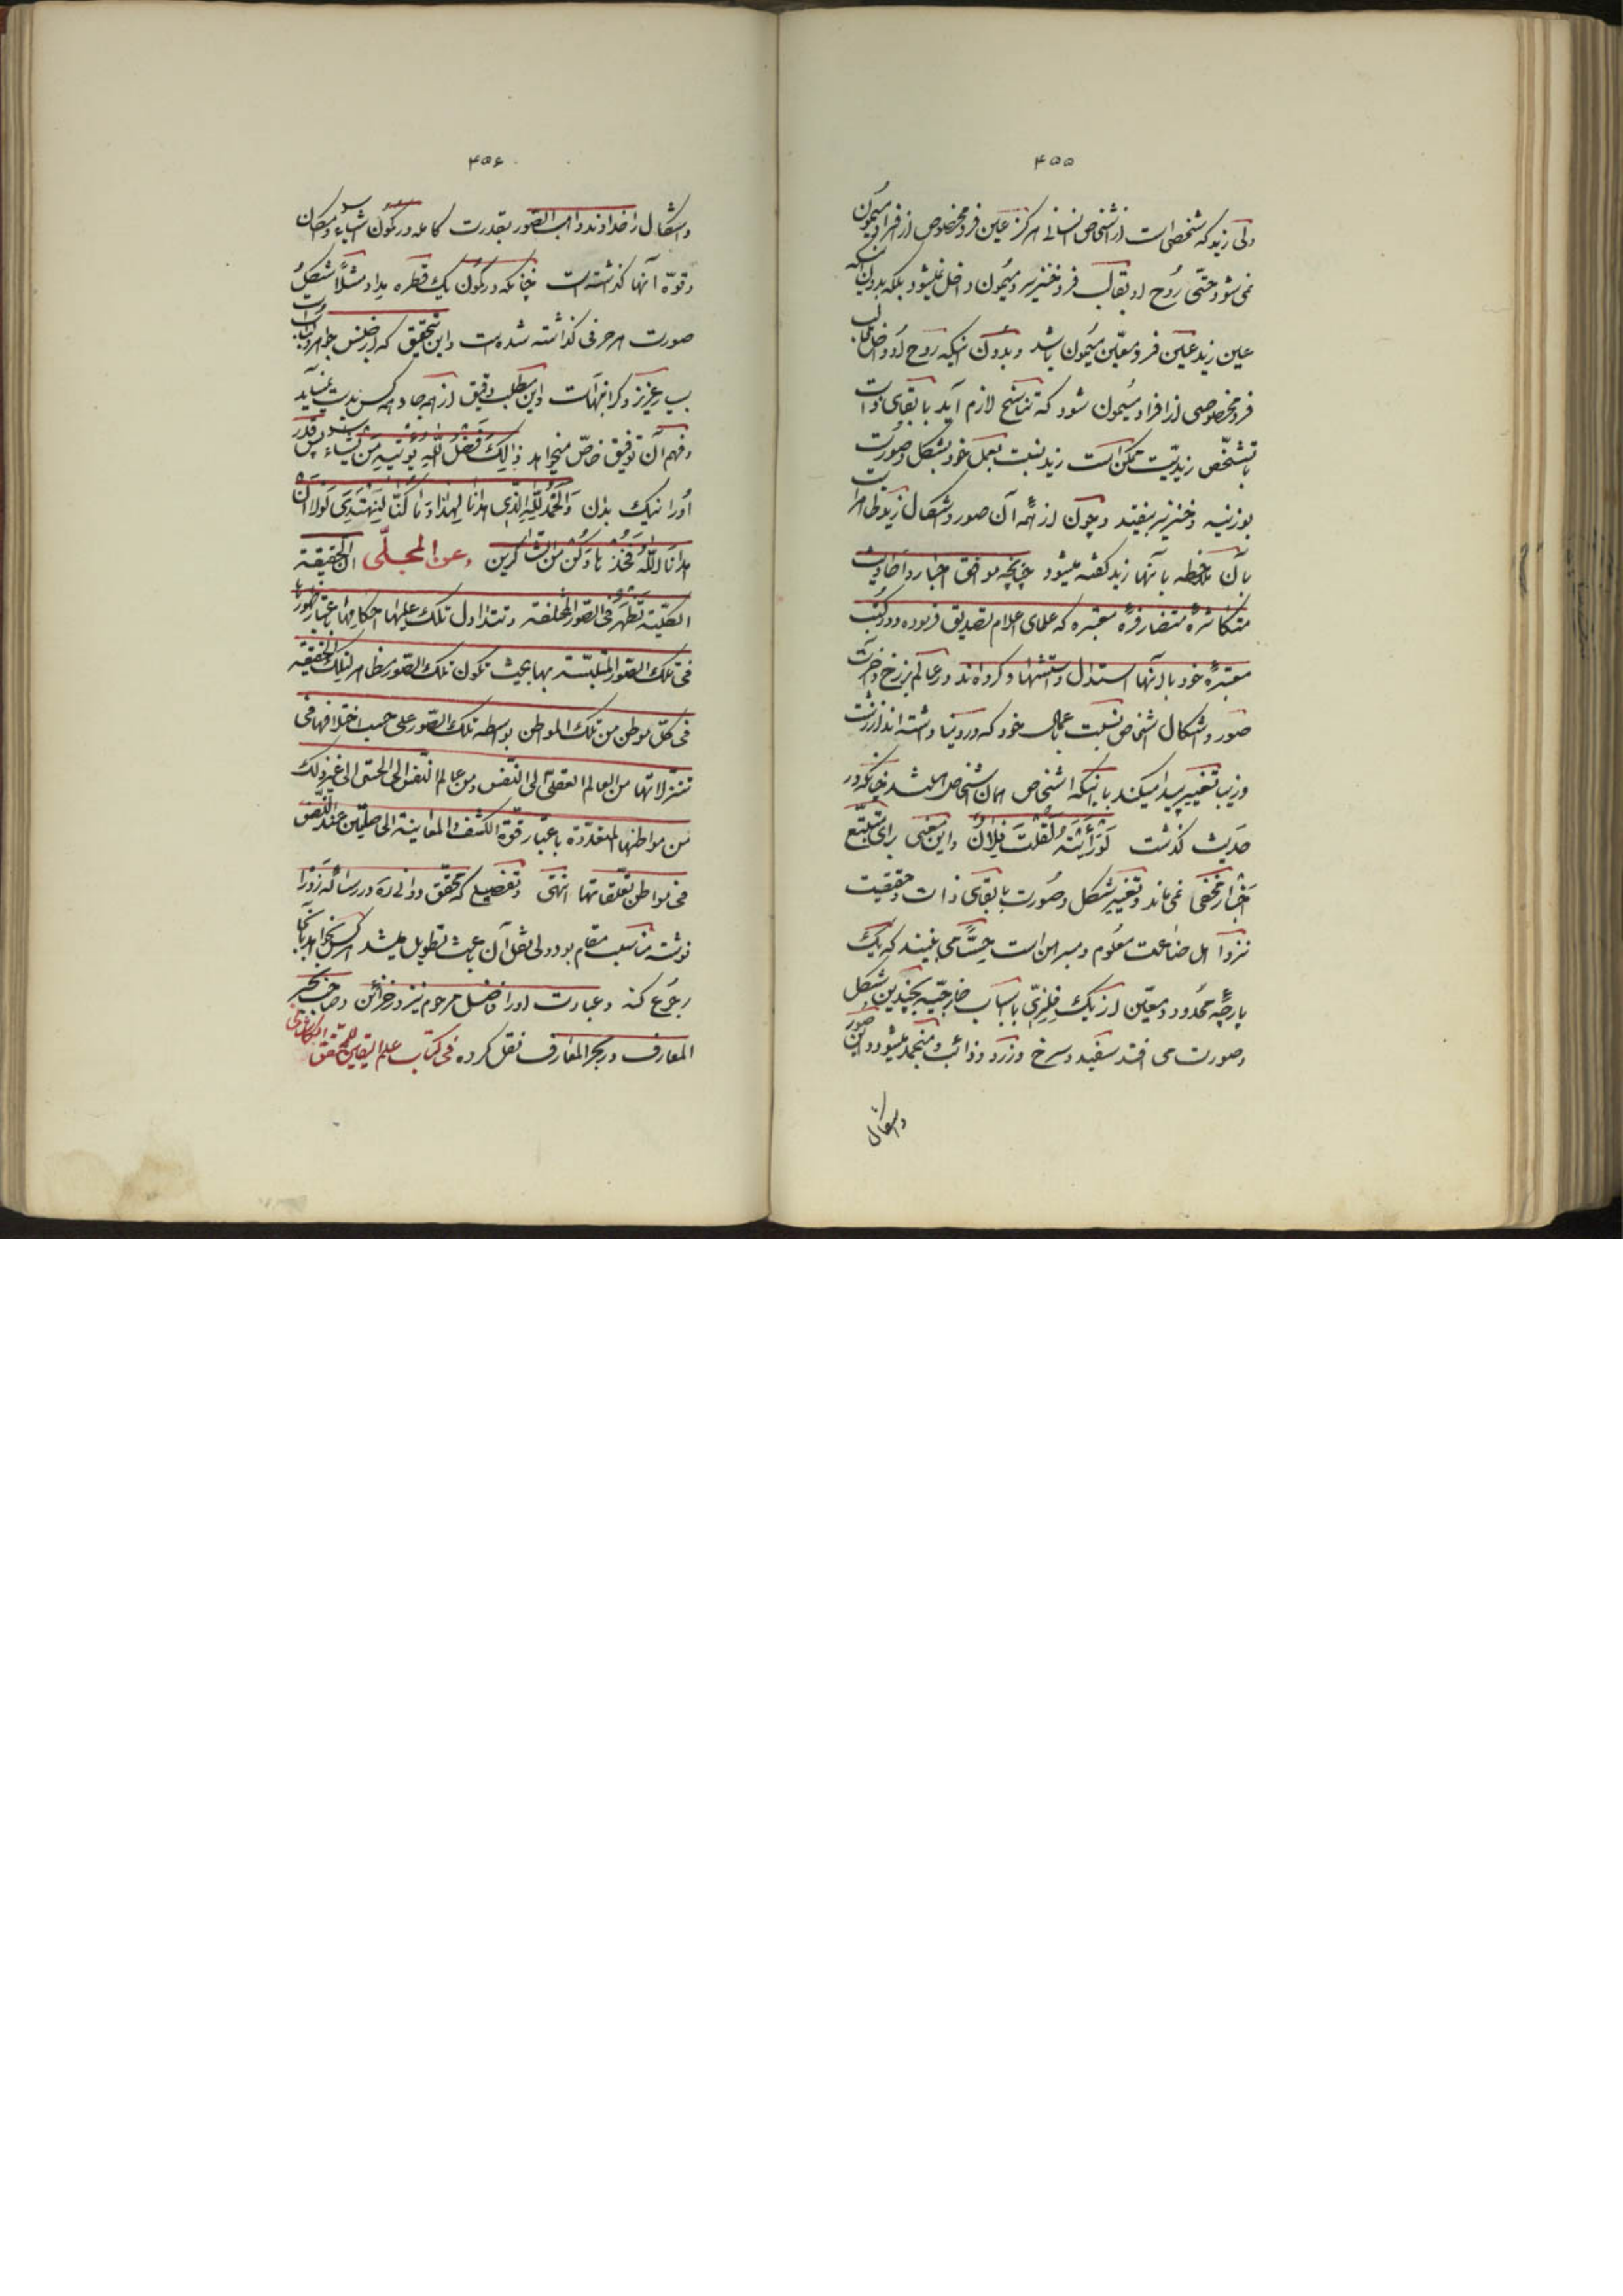 ۴۵۵
ولی زید که شخصی است از اشخاص انسانی هرگز عین فرد مخصوص از افراد میمون
نمی‌شود حتی روح او بقالب فرد خنزیر و میمون داخل نمیشود بلکه بدون اینکه
عین زید عین فرد معیّن میمون باشد و بدون اینکه روح او داخل قالب
فرد مخصوصی از افراد میمون شود که تناسخ لازم آید با بقای ذات
با تشخّص زیدیّت ممکن است زید نسبت بعمل خود بشکل و صورت
بوزینه و خنزیر بیفتد و چون از همه آن صور و اشکال زید ظاهر است
بآن ملاحظه بآنها زید گفته میشود چنانچه موافق اخبار و احادیث
متکاثرهٔ متضافرهٔ معتبره که علمای اعلام تصدیق فرموده و در کتب
معتبرهٔ خود بآنها استدلال و استشهاد کرده‌اند در عالم برزخ و آخرت
صور و اشکال اشخاص نسبت باعمال خود که در دنیا داشته‌اند از زشت
و زیبا تغییر پیدا میکند با اینکه اشخاص همان اشخاص میباشد چنانکه در
حدیث گذشت لَوْ رَأَیْتَهُ لَقُلْتَ فُلانٌ و این معنی برای متتبّع
اخبار مخفی نمی‌ماند و تغییر شکل و صورت با بقای ذات و حقیقت
نزد اهل صناعت معلوم و مبرهن است حسّاً می بینند که یک
پارچهٔ محدود و معیّن از یک فلزّی باسباب خارجیّه بچندین شکل
و صورت می افتد سفید و سرخ و زرد و ذائب و منجمد میشود و این صور
واشکال
۴۵۶
و اشکال را خداوند واهب الصّور بقدرت کامله در کمون اشیاء و امکان
و قوّه آنها گذاشته است چنانکه در کمون یک قطره مداد مثلاً شکل و
صورت هر حرفی گذاشته شده است و این تحقیق که از جنس جواهر
بسیار عزیز و گرانبهاست و این مطلب دقیق از همه جا و همه کس بدست نمیآید
و فهم آن توفیق خاصّ میخواهد ذٰلِکَ فَضْلُ اللّٰهِ یُؤْتیهِ مَنْ یَشاءُ پس قدر
او را نیک بدان وَالْحَمْدُ لِلّٰهِ الَّذی هدانا لِهٰذا وَما کُنّا لِنَهْتَدِیَ لَوْلا اَنْ
هدانا اللّٰهُ فَخُذْ ها وَکُنْ مِنَ الشّاکِرین وعن المجلّی انّ الحقیقة
الکلّیّة تظهر فی الصّور المختلفة و تتداول تلک علیها احکامها باعتبار ظهورها
فی تلک الصّور المتلبّسة بها بحیث تکون تلک الصّور مظاهر لتلک الحقیقة
فی کلّ موطن من تلک المواطن بواسطه تلک الصّور علی حسب اختلافها فی
تنزّلاتها من العالم العقلیّ الی النّفس و من عالم النّفس الی الحسّی الی غیر ذلک
من مواطنها المتعدّدة باعتبار قوّة الکشف و المعاینة الحاصلتین عند النّفس
فی مواطن تعلّقاتها انتهی و تفصیلی که محقق دوانی ره در رساله زوراء
نوشته مناسب مقام بود ولی نقل آن باعث تطویل میشد هر کس بخواهد بآنجا
رجوع کند و عبارت او را فاضل مرحوم نیز در خزائن و صاحب بحر
المعارف در بحر المعارف نقل کرده فی کتاب علم الیقین للمحقّق الکاشانی